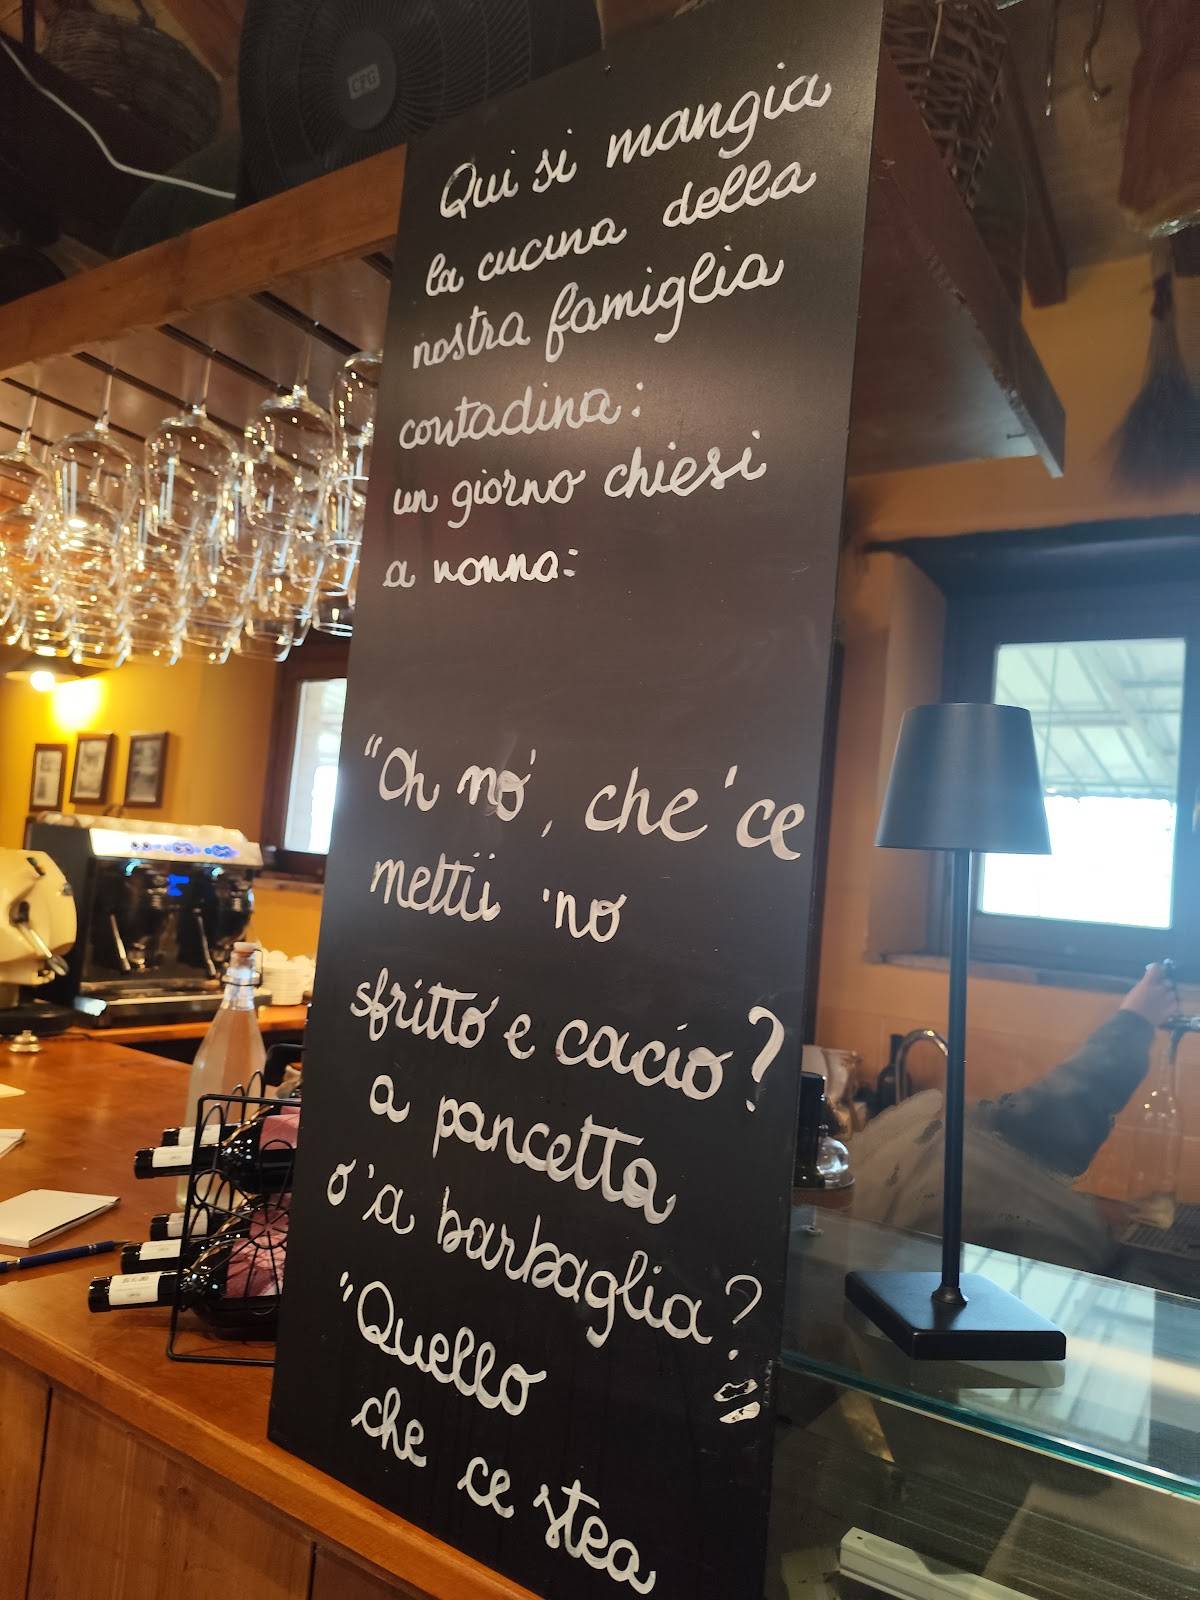 GFG
Qui si mangia
la cucina della
nostra famiglia
contadina:
un giorno chiesi
a nonna:
"Oh no', che 'ce
mettii 'no
sfritto e cacio?
a pancetta
o 'a barbaglia?"
"Quello
che ce stea